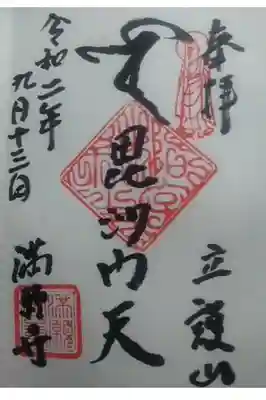 奉拝
立護山
毘沙門天
令和二年
九月十三日
満願寺